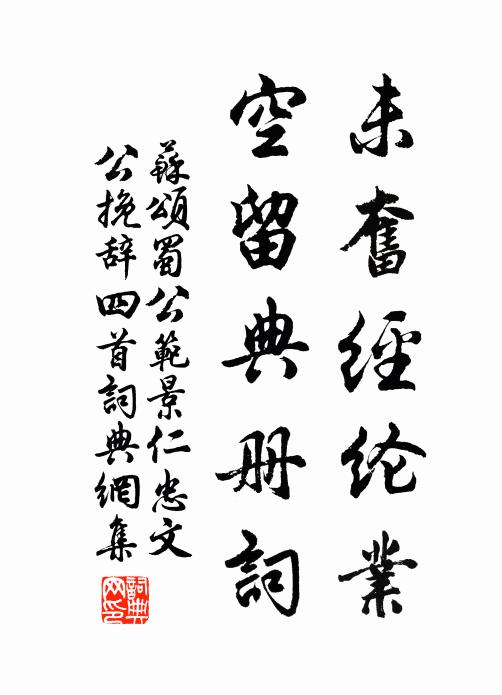 未奮經纶業
空留典册詞
蘇頌蜀公範景仁忠文
公挽辞四首詞典網集
詞典網印